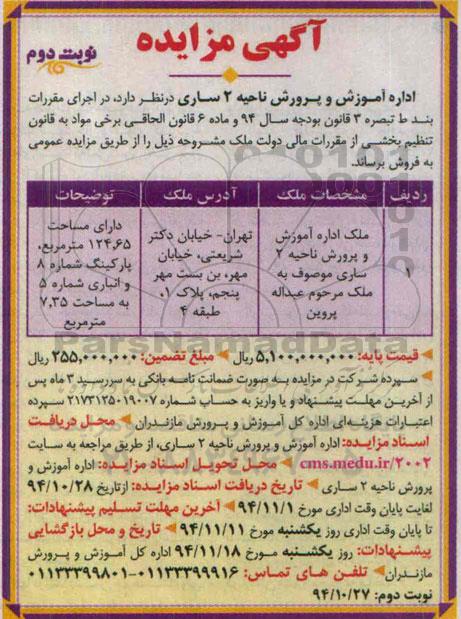 آگهی مزایده
نوبت دوم
اداره آموزش و پرورش ناحیه ۲ ساری درنظر دارد، در اجرای مقررات
بند ط تبصره ۳ قانون بودجه سال ۹۴ و ماده ۶ قانون الحاقی برخی مواد به قانون
تنظیم بخشی از مقررات مالی دولت ملک مشروحه ذیل را از طریق مزایده عمومی
به فروش برساند.
ردیف مشخصات ملک آدرس ملک توضیحات
۱
ملک اداره آموزش
و پرورش ناحیه ۲
ساری موصوف به
ملک مرحوم عبداله
پروین
تهران- خیابان دکتر
شریعتی، خیابان
مهر، بن بست مهر
پنجم، پلاک ۰۱
طبقه ۴
دارای مساحت
۱۲۴,۶۵ مترمربع،
پارکینگ شماره ۸
و انباری شماره ۵
به مساحت ۷,۳۵
مترمربع
قیمت پایه: ۵,۱۰۰,۰۰۰,۰۰۰ ریال مبلغ تضمین: ۲۵۵,۰۰۰,۰۰۰ ریال
سپرده شرکت در مزایده به صورت ضمانت نامه بانکی به سررسید ۳ ماه پس
از آخرین مهلت پیشنهاد و یا واریز به حساب شماره ۲۱۷۳۱۲۵۰۱۹۰۰۷ سپرده
اعتبارات هزینه‌ای اداره کل آموزش و پرورش مازندران محل دریافت
اسناد مزایده: اداره آموزش و پرورش ناحیه ۲ ساری، از طریق مراجعه به سایت
cms.medu.ir/۲۰۰۲ محل تحویل اسناد مزایده: اداره آموزش و
پرورش ناحیه ۲ ساری تاریخ دریافت اسناد مزایده: ازتاریخ ۹۴/۱۰/۲۸
لغایت پایان وقت اداری مورخ ۹۴/۱۱/۱ آخرین مهلت تسلیم پیشنهادات:
تا پایان وقت اداری روز یکشنبه مورخ ۹۴/۱۱/۱۱ تاریخ و محل بازگشایی
پیشنهادات: روز یکشنبه مورخ ۹۴/۱۱/۱۸ اداره کل آموزش و پرورش
مازندران تلفن های تماس: ۰۱۱۳۳۳۹۹۹۱۶-۰۱۱۳۳۳۹۹۸۰۱
نوبت دوم: ۹۴/۱۰/۲۷
ParsNamadData